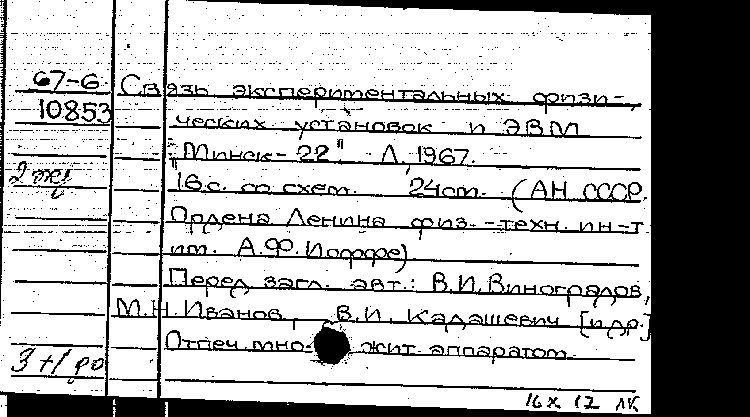 67-6 Связь экспериментальных физи-
10853 ческих установок и ЭВМ
"Минск-22" Л, 1967.
2 экз 16 с. со схем. 24 см. (АН СССР.
Ордена Ленина физ.-техн. ин-т
им. А.Ф. Иоффе)
Перед загл. авт.: В.И. Виноградов,
М.Н. Иванов, В.И. Кадашевич [и др.]
3+1 ро Отпеч. множит. аппаратом.
16 X 17 ЛК